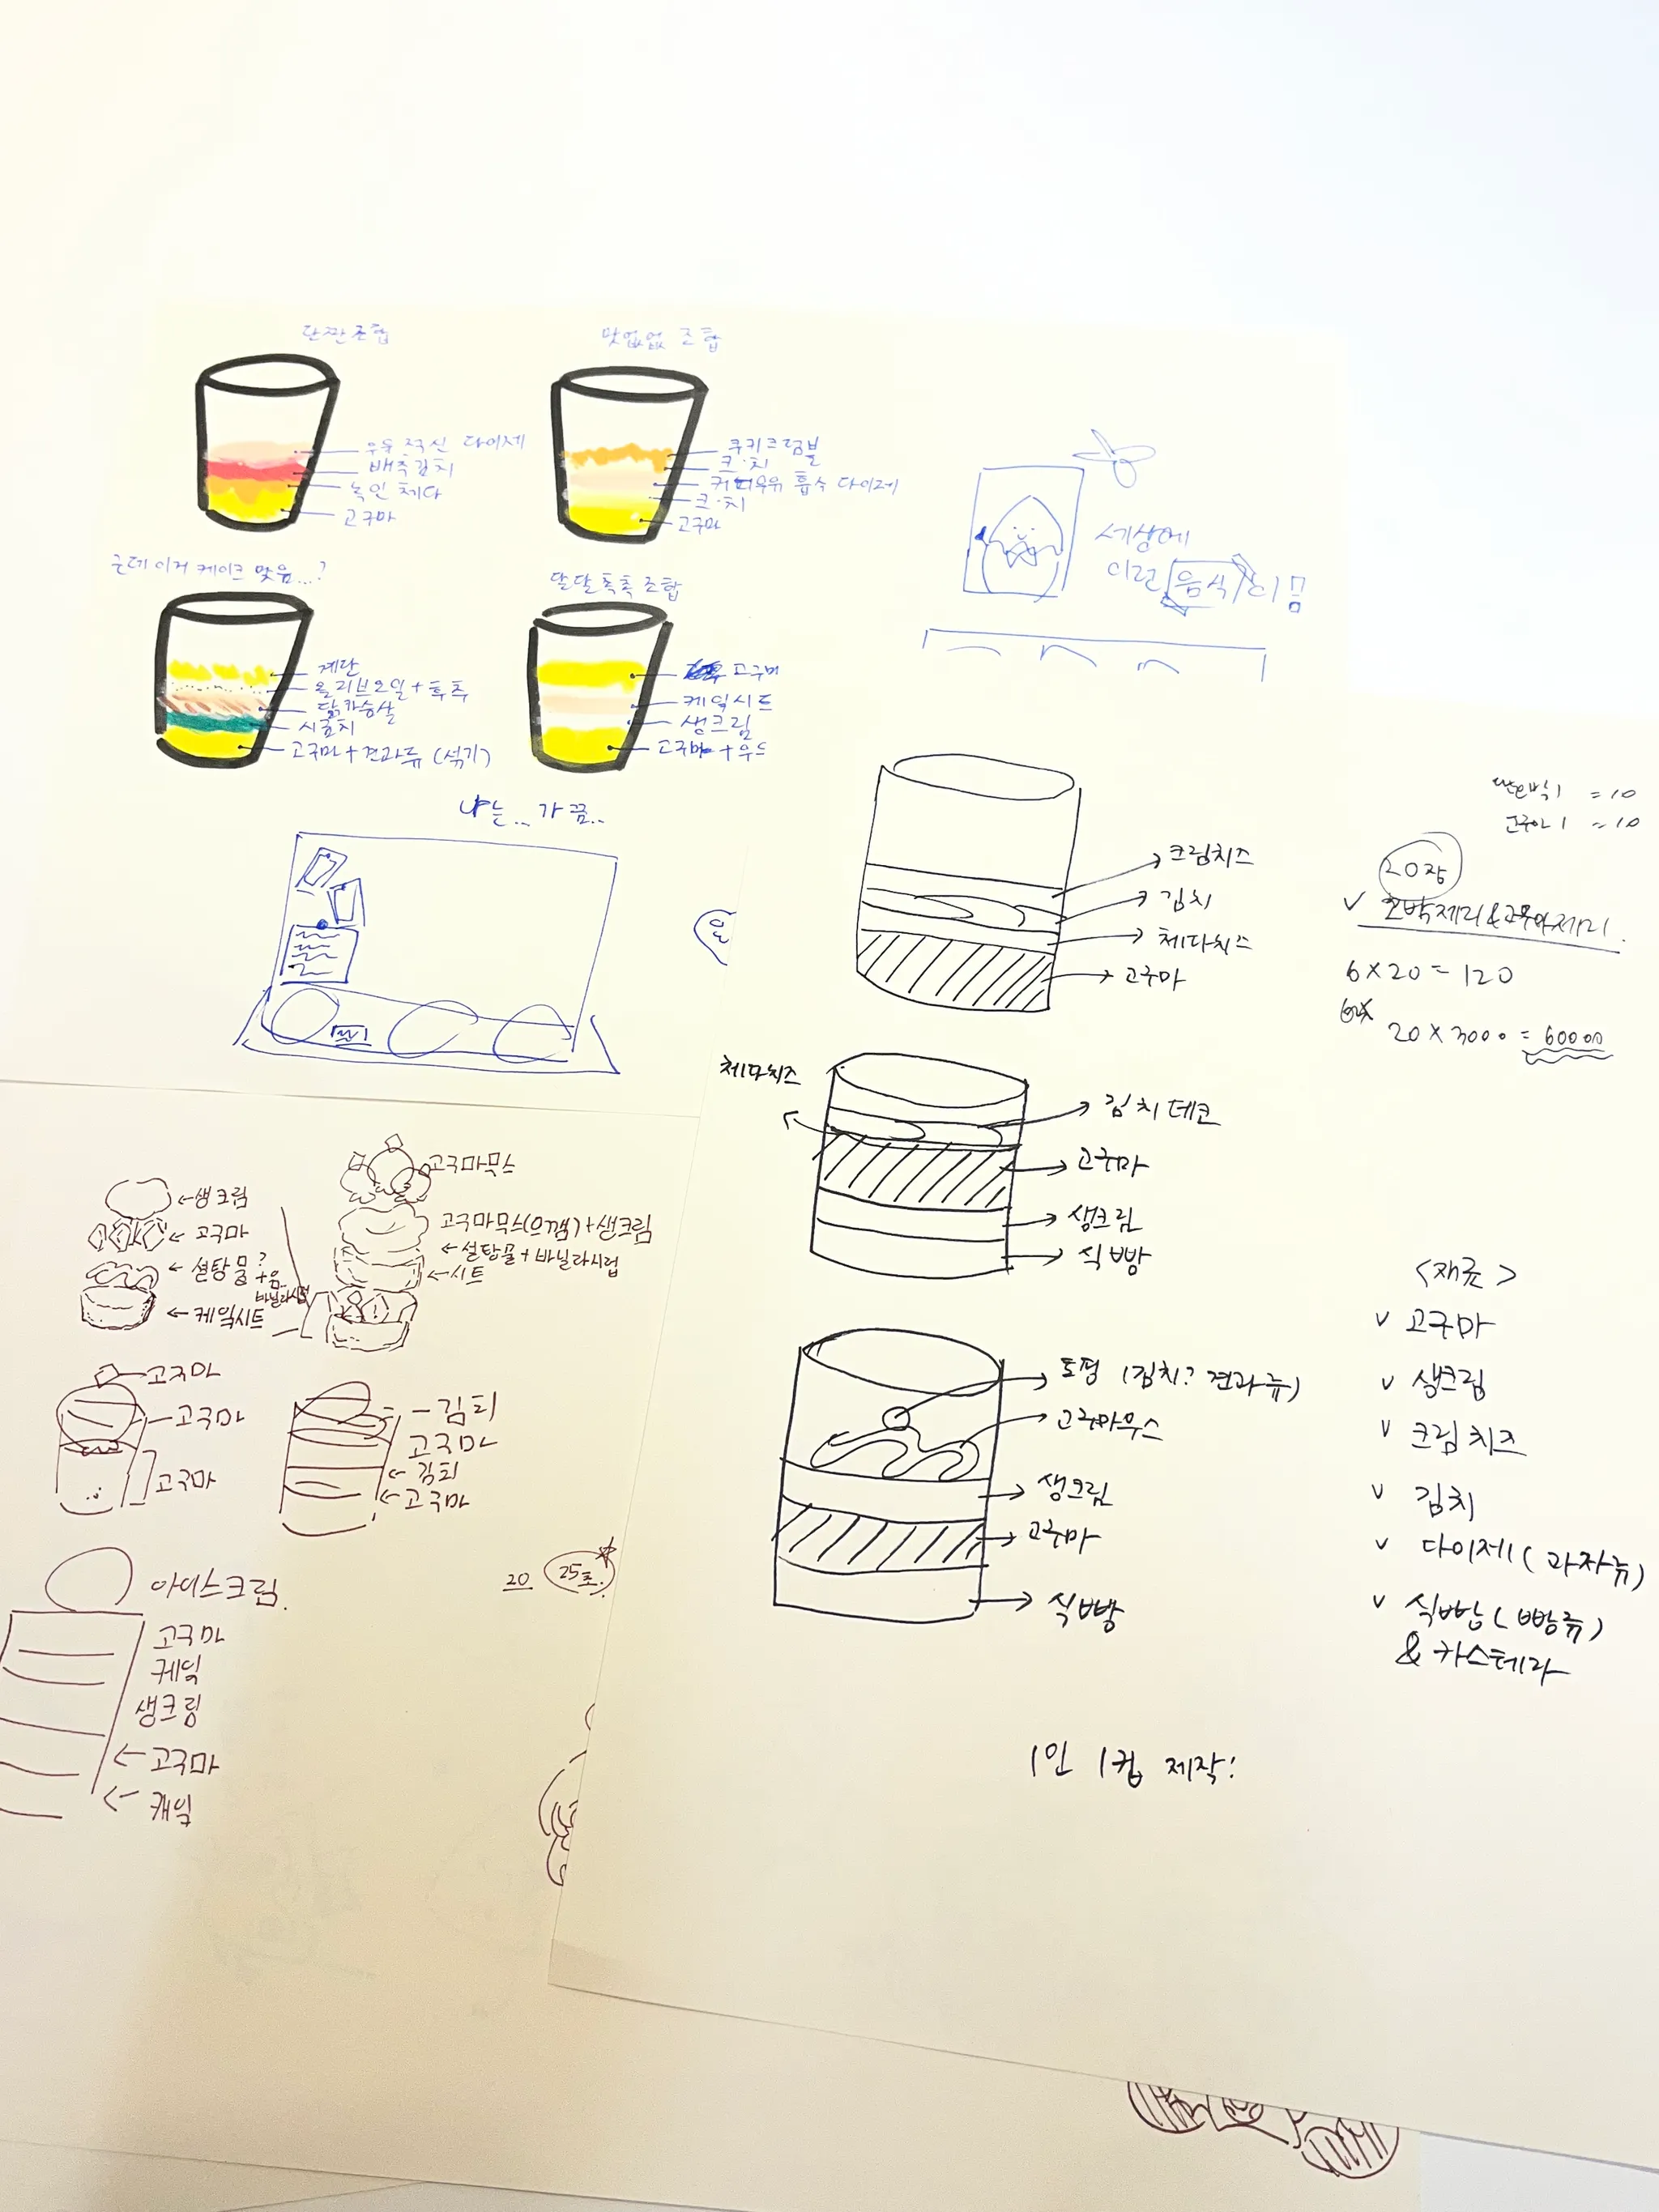 단짠조합
우유 적신 다이제
배추김치
녹인 체다
고구마
맛없없 조합
쿠키크럼블
크.치
커피우유 흡수 다이제
크.치
고구마
근데 이거 케이크 맞음...?
계란
올리브오일+후추
닭가슴살
시금치
고구마+견과류 (섞기)
달달촉촉조합
고구마
케잌시트
생크림
고구마+우유
세상에
이런 음식이 뭄
나는... 가끔..
크림치즈
김치
체다치즈
고구마
= 10
= 10
20장
호박제리&고구마제리.
6×20=120
20×3000=60000
체다치즈
김치데코
고구마
생크림
식빵
토핑 (김치? 견과류)
고구마무스
생크림
고구마
식빵
<재료>
∨ 고구마
∨ 생크림
∨ 크림치즈
∨ 김치
∨ 다이제(과자류)
∨ 식빵(빵류)
& 카스테라
1인 1컵 제작!
←생크림
← 고구마
← 설탕물?
바닐라시럽
← 케잌시트
고구마무스
고구마무스(으깸)+생크림
←설탕물+바닐라시럽
←시트
고구마
고구마
고구마
김치
고구마
← 김치
←고구마
20
25초.
아이스크림.
고구마
케잌
생크림
←고구마
← 케잌